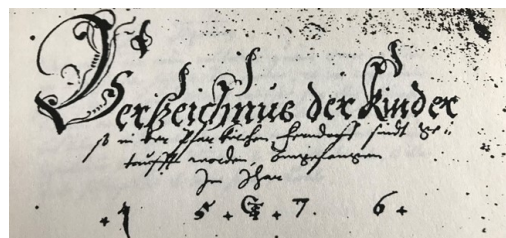 Verzeichnus der Kinder
so in der Pfar kirchen sindt ge=
taufft worden, Angefangen
Im Jhar
+ 1 5 + + 7. 6 +